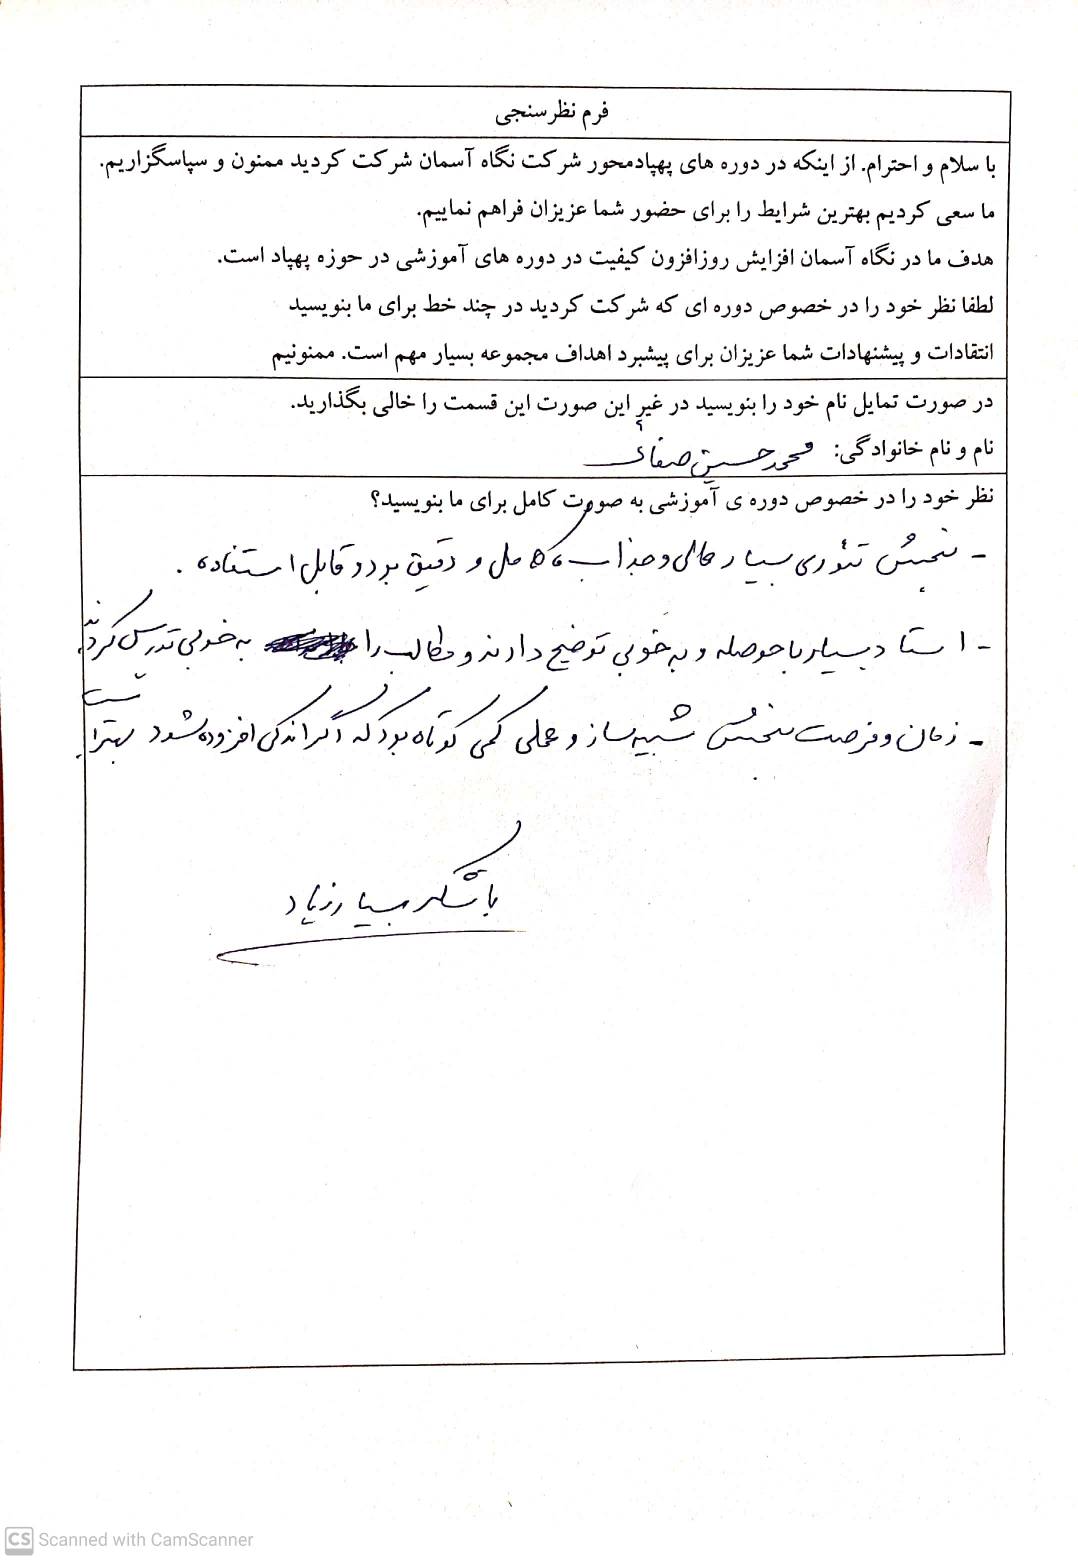 فرم نظرسنجی
با سلام و احترام. از اینکه در دوره های پهپادمحور شرکت نگاه آسمان شرکت کردید ممنون و سپاسگزاریم.
ما سعی کردیم بهترین شرایط را برای حضور شما عزیزان فراهم نماییم.
هدف ما در نگاه آسمان افزایش روزافزون کیفیت در دوره های آموزشی در حوزه پهپاد است.
لطفا نظر خود را در خصوص دوره ای که شرکت کردید در چند خط برای ما بنویسید
انتقادات و پیشنهادات شما عزیزان برای پیشبرد اهداف مجموعه بسیار مهم است. ممنونیم
در صورت تمایل نام خود را بنویسید در غیر این صورت این قسمت را خالی بگذارید.
نام و نام خانوادگی: محمدحسین صفائی
نظر خود را در خصوص دوره ی آموزشی به صورت کامل برای ما بنویسید؟
- بخش تئوری بسیار عالی و جذاب کامل و دقیق بود و قابل استفاده.
- استاد بسیار با حوصله و به خوبی توضیح دادند و مطالب را به خوبی تدریس کردند.
- زمان و فرصت بخش شبیه ساز و عملی کمی کوتاه بود که اگر اندکی افزوده شود بهتر است
با تشکر بسیار زیاد
CS Scanned with CamScanner